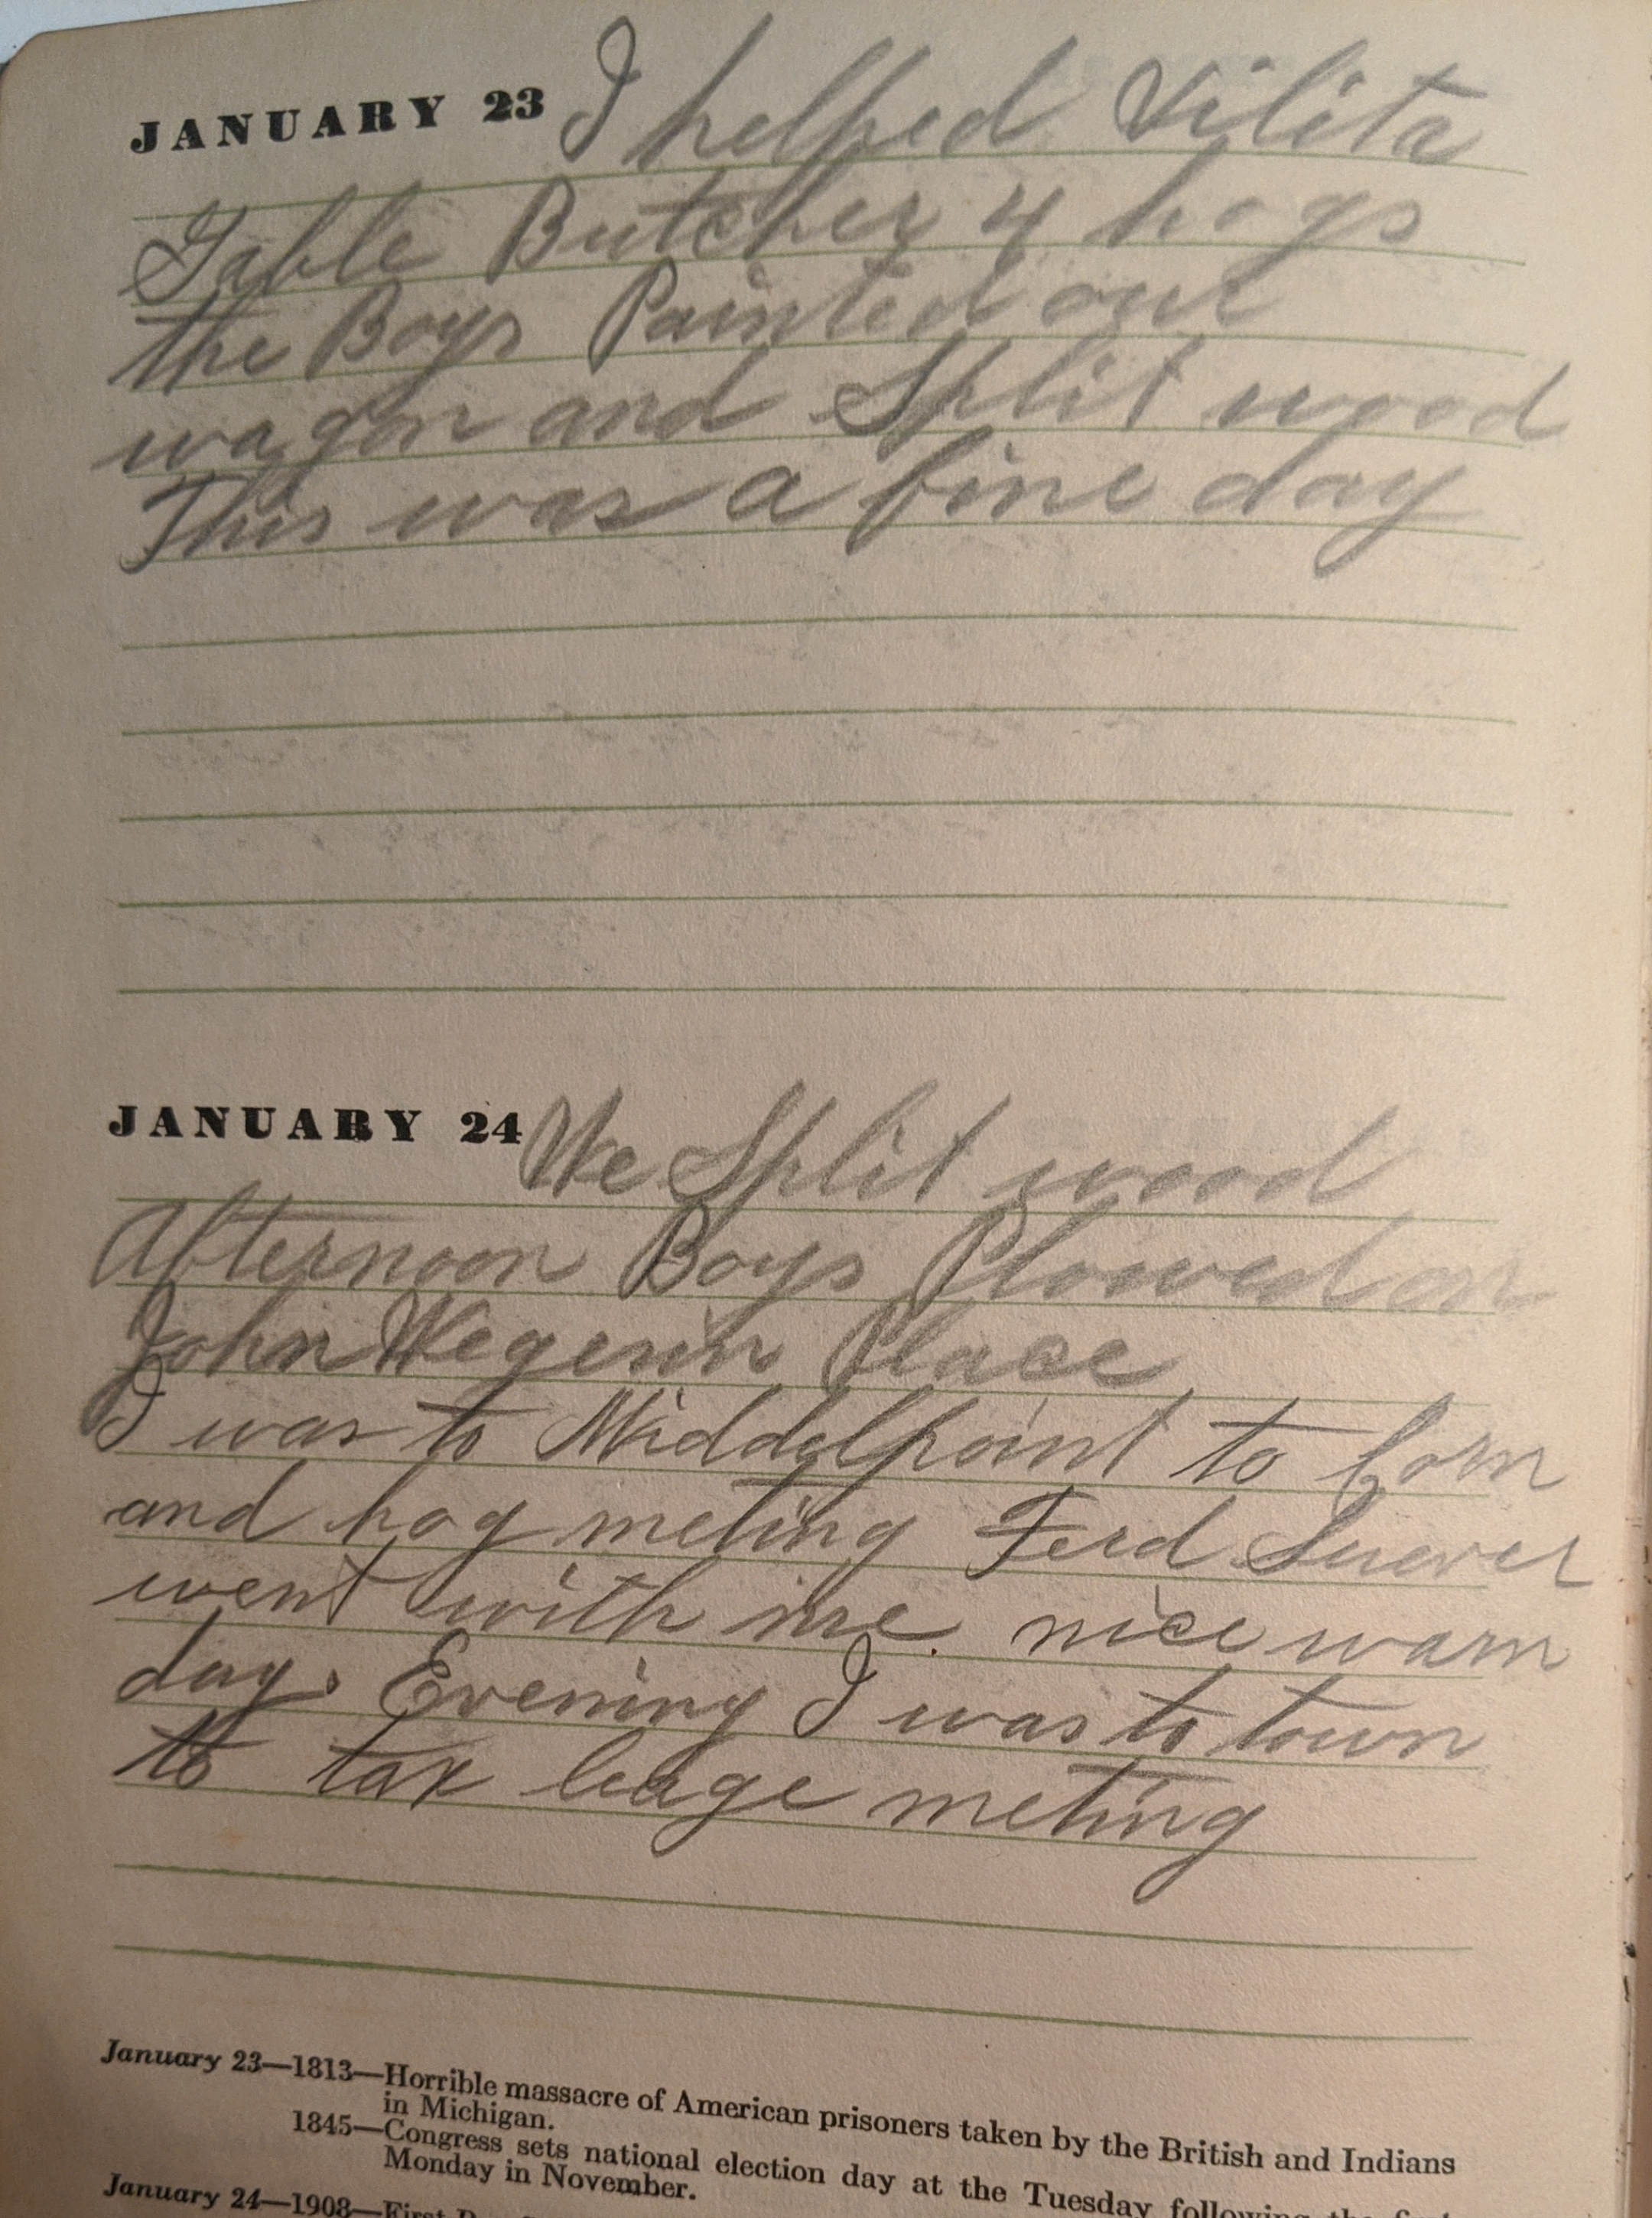 JANUARY 23 I helped Vilita
Gable Butcher 4 hogs
the Boys Painted our
wagon and Split wood
This was a fine day
JANUARY 24 We Split wood
Afternoon Boys Plowed on
John Wegerin Place
I was to Middelpoint to Corn
and hog meting Ferd Suever
went with me. nice warm
day. Evening I was to town
to tax leage meting
January 23—1813—Horrible massacre of American prisoners taken by the British and Indians
in Michigan.
1845—Congress sets national election day at the Tuesday following the
Monday in November.
January 24—1908—First